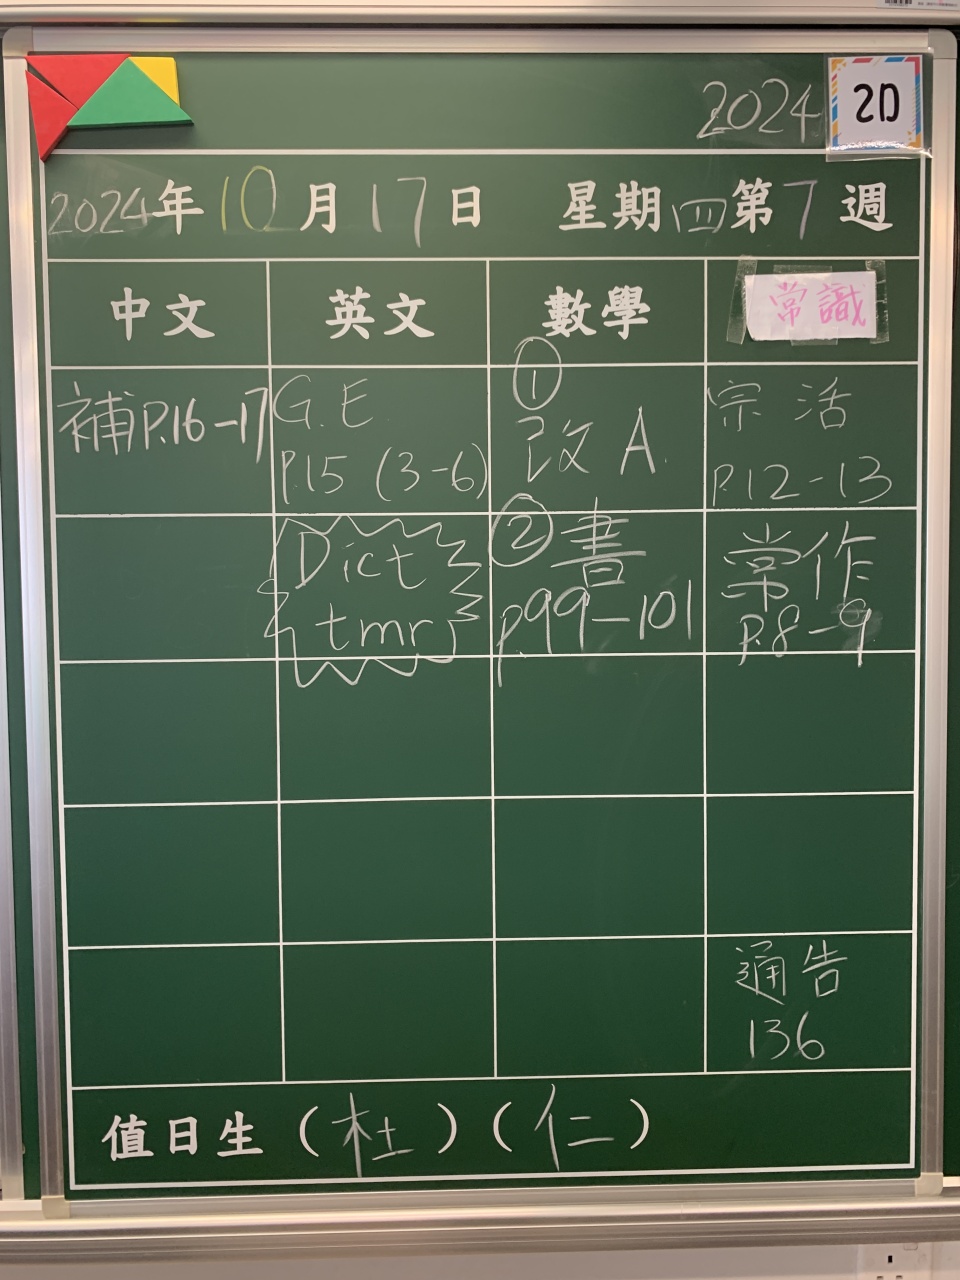 2024
2D
2024年10月17日 星期四第7週
中文 英文 數學 常識
補P.16-17
G.E
P.15 (3-6)
①
改A
宗活
P.12-13
Dict
tmr
②書
p.99-101
常作
P.8-9
通告
136
值日生(杜)(仁)